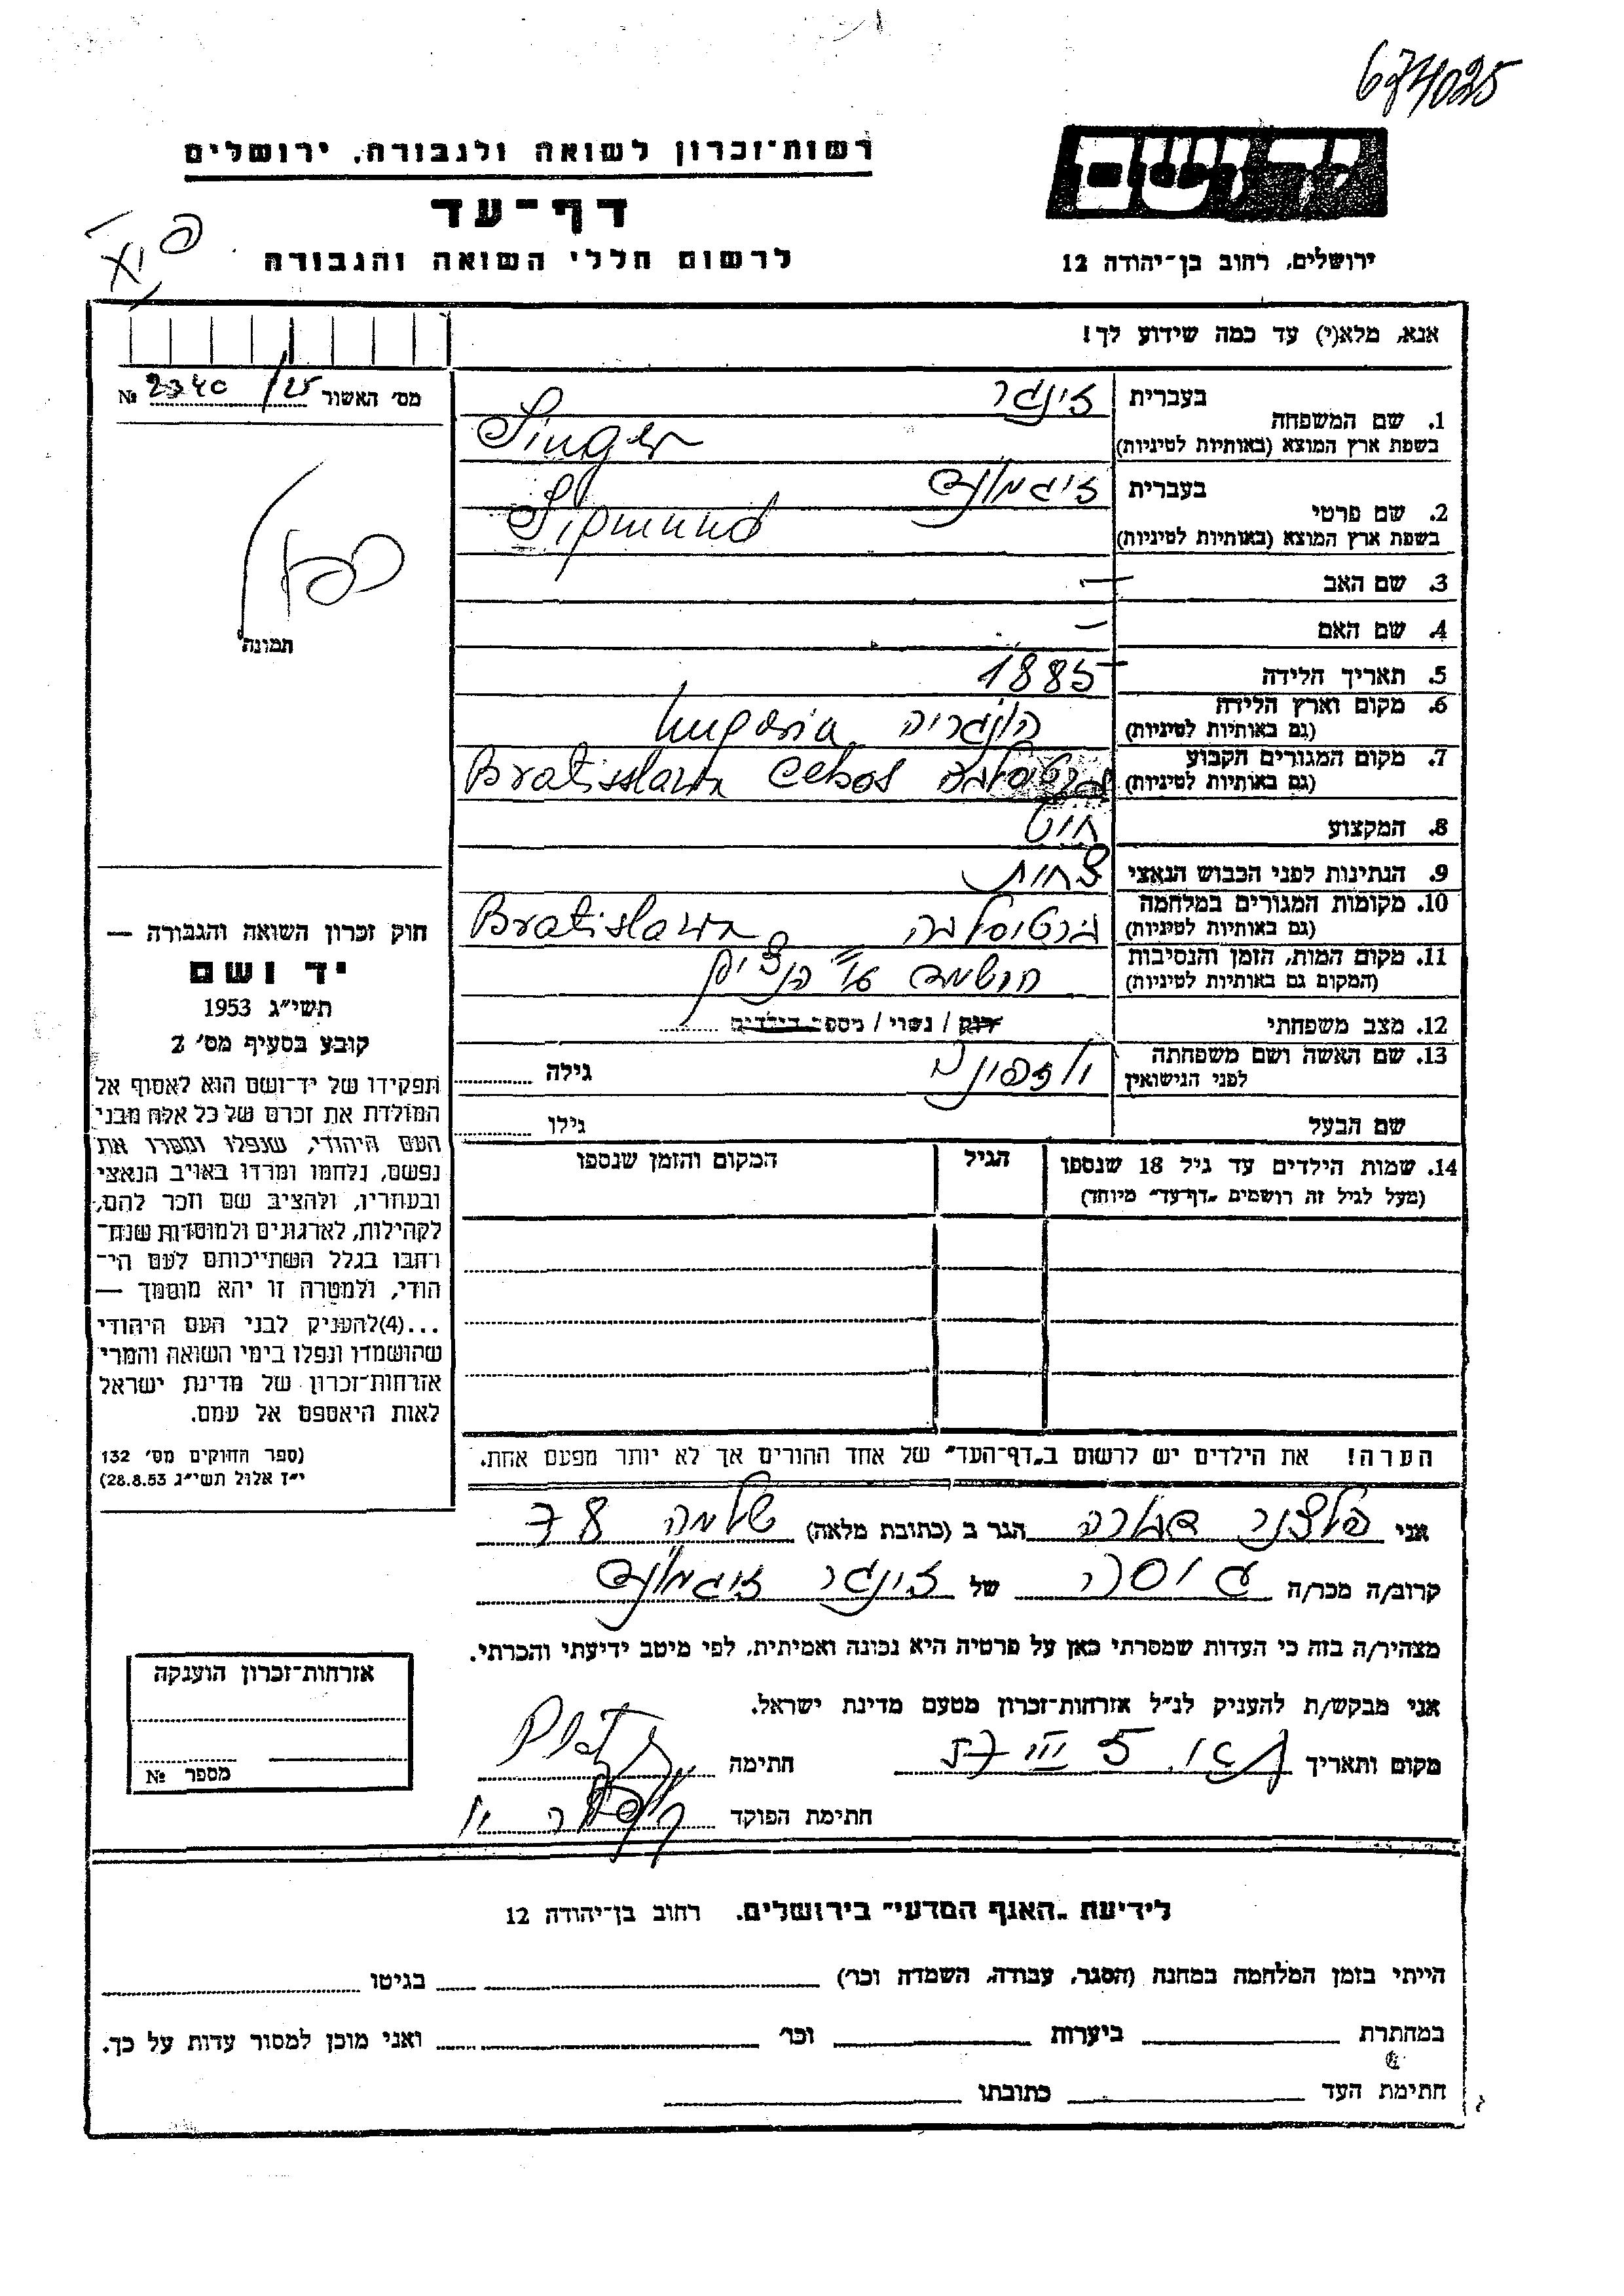 674025
יד ושם
רשות־זכרון לשואה ולגבורה, ירושלים
דף־עד
לרשום חללי השואה והגבורה
ירושלים, רחוב בן־יהודה 12
אנא, מלא(י) עד כמה שידוע לך!
מס׳ האשור 2340/25 №
תמונה
1. שם המשפחה בעברית זינגר
בשפת ארץ המוצא (באותיות לטיניות) Singer
2. שם פרטי בעברית זיגמונד
בשפת ארץ המוצא (באותיות לטיניות) Sigmund
3. שם האב —
4. שם האם —
5. תאריך הלידה 1885
6. מקום וארץ הלידה הונגריה
(גם באותיות לטיניות) hugaria
7. מקום המגורים הקבוע ברטיסלבה
(גם באותיות לטיניות) Bratisslawa
8. המקצוע
9. הנתינות לפני הכבוש הנאצי
10. מקומות המגורים במלחמה ברטיסלבה
(גם באותיות לטיניות) Bratislawa
11. מקום המות, הזמן והנסיבות הושמד ע״י הנצים
(המקום גם באותיות לטיניות)
12. מצב משפחתי רווק / נשוי / מספר הילדים
13. שם האשה ושם משפחתה
לפני הנישואין גילה
שם הבעל גילו
14. שמות הילדים עד גיל 18 שנספו הגיל המקום והזמן שנספו
(מעל לגיל זה רושמים „דף־עד״ מיוחד)
הערה! את הילדים יש לרשום ב„דף־העד״ של אחד ההורים אך לא יותר מפעם אחת.
חוק זכרון השואה והגבורה —
יד ושם
תשי״ג 1953
קובע בסעיף מס׳ 2
תפקידו של יד־ושם הוא לאסוף אל
המולדת את זכרם של כל אלה מבני
העם היהודי, שנפלו ומסרו את
נפשם, נלחמו ומרדו באויב הנאצי
ובעוזריו, ולהציב שם וזכר להם,
לקהילות, לארגונים ולמוסדות שנח־
רחבו בגלל השתייכותם לעם הי־
הודי, ולמטרה זו יהא מוסמך —
...(4)להעניק לבני העם היהודי
שהושמדו ונפלו בימי השואה והמרי
אזרחות־זכרון של מדינת ישראל
לאות היאספם אל עמם.
(ספר החוקים מס׳ 132
י״ז אלול תשי״ג 28.8.53)
אני פלצנר שרה הגר ב (כתובת מלאה) שלמה 78
קרוב/ה מכר/ה של זינגר זיגמונד
מצהיר/ה בזה כי העדות שמסרתי כאן על פרטיה היא נכונה ואמיתית, לפי מיטב ידיעתי והכרתי.
אני מבקש/ת להעניק לנ״ל אזרחות־זכרון מטעם מדינת ישראל.
מקום ותאריך חתימה
חתימת הפוקד
אזרחות־זכרון הוענקה
מספר №
לידיעת „האגף המדעי״ בירושלים, רחוב בן־יהודה 12
הייתי בזמן המלחמה במחנה (הסגר, עבודה, השמדה וכו׳) בגיטו
במחתרת ביערות וכו׳ ואני מוכן למסור עדות על כך.
חתימת העד כתובתו